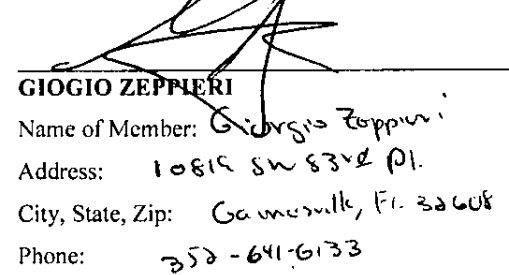 GIOGIO ZEPPIERI
Name of Member: Giorgio Zeppieri
Address: SW 83rd Pl.
City, State, Zip: Gainesville, Fl. 32608
Phone: 352-641-6133